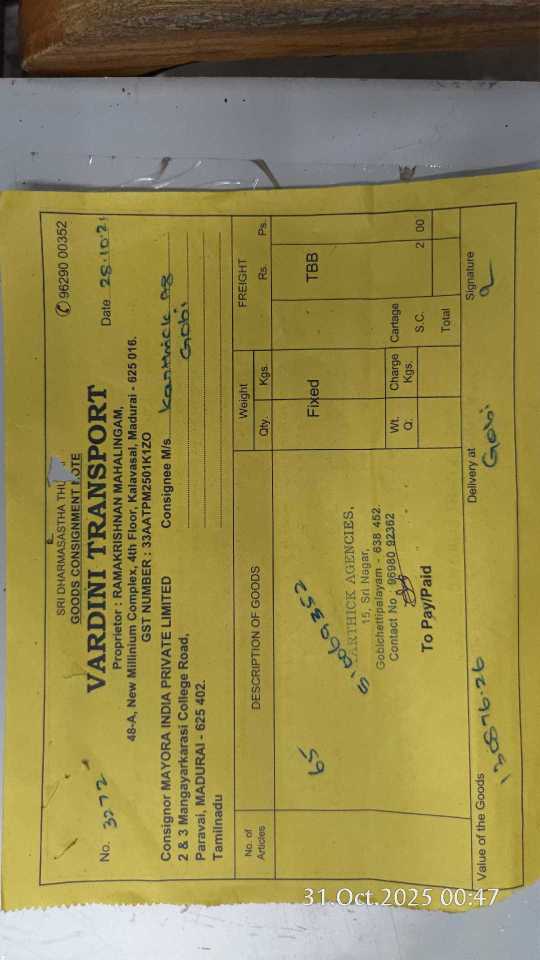 SRI DHARMASASTHA THU
GOODS CONSIGNMENT NOTE
✆ 96290 00352
VARDINI TRANSPORT
No. 3272
Date 28.10.2
Proprietor : RAMAKRISHNAN MAHALINGAM,
48-A, New Millinium Complex, 4th Floor, Kalavasal, Madurai - 625 016.
GST NUMBER : 33AATPM2501K1ZO
Consignor MAYORA INDIA PRIVATE LIMITED
2 & 3 Mangayarkarasi College Road,
Paravai, MADURAI - 625 402.
Tamilnadu
Consignee M/s. Karthick
Gobi
No. of Articles
DESCRIPTION OF GOODS
Weight
Qty.
Kgs.
FREIGHT
Rs.
Ps.
65
Fixed
TBB
ARTHICK AGENCIES,
15, Sri Nagar,
Gobichettipalayam - 638 452.
Contact No 96980 92362
To Pay/Paid
Wt. Q.
Charge Kgs.
Cartage
S.C.
2 00
Total
Value of the Goods
Delivery at
Gobi
Signature
31.Oct.2025 00:47